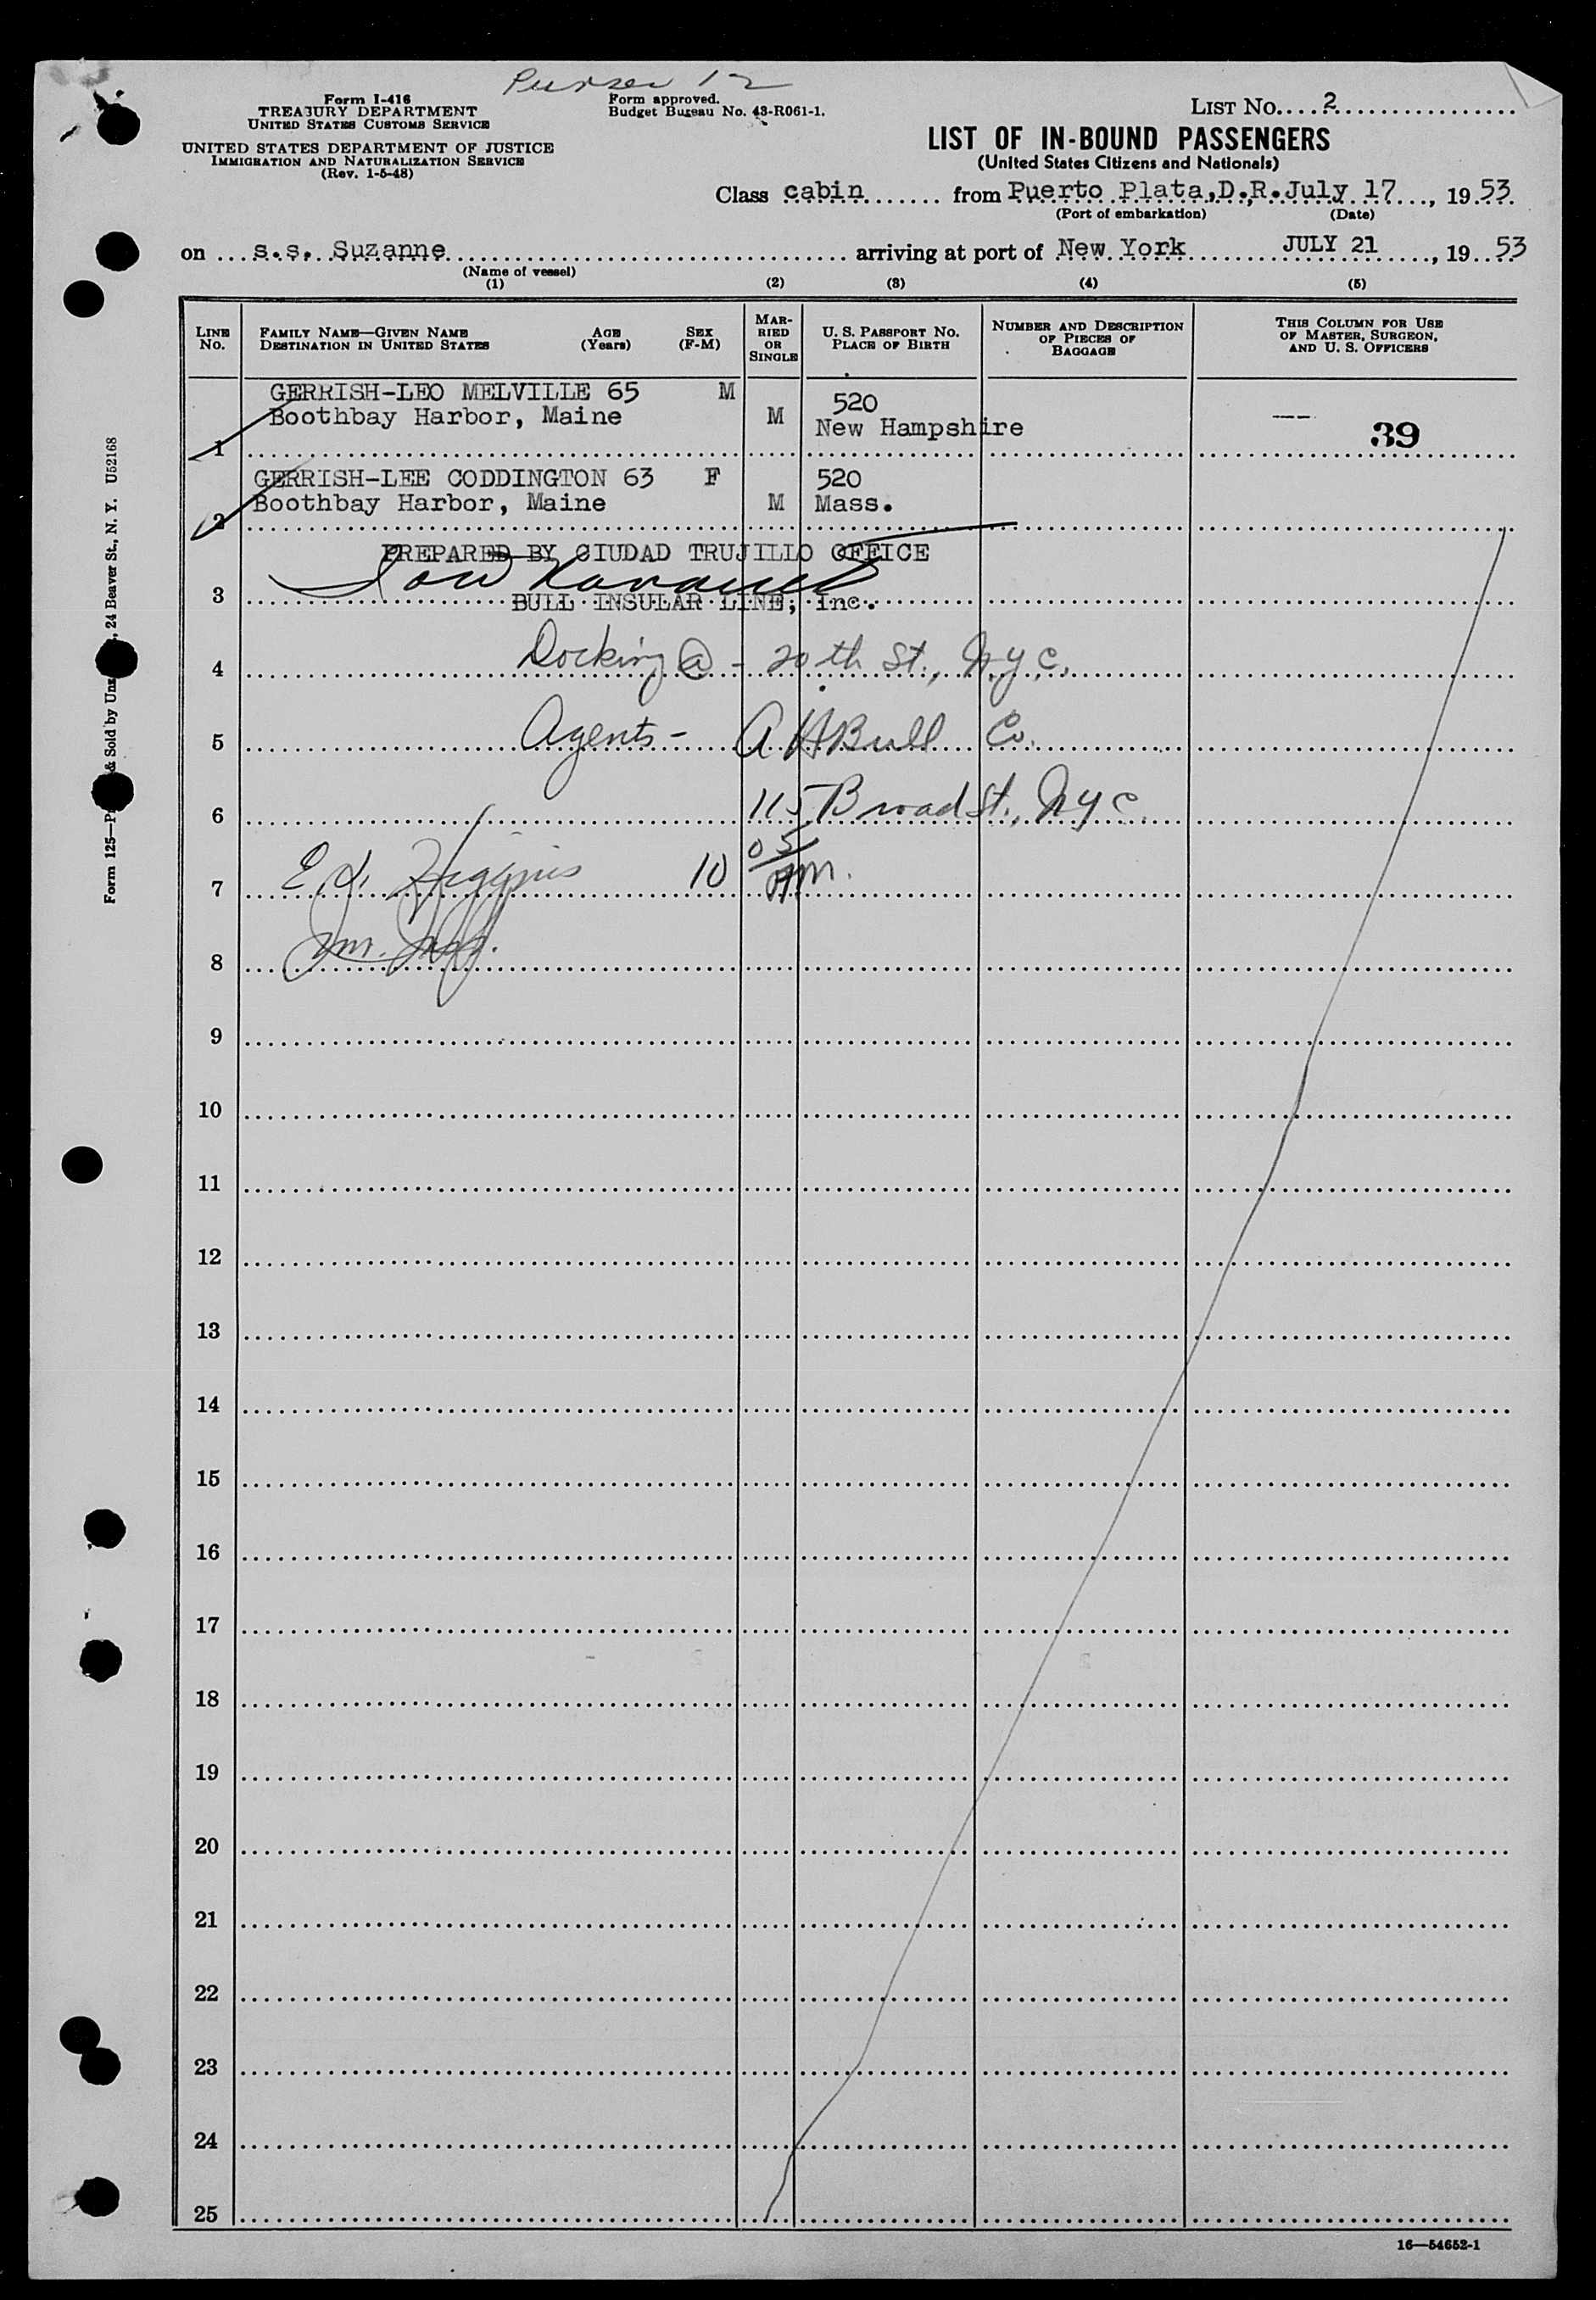 Purser 12
Form I-416
TREASURY DEPARTMENT
UNITED STATES CUSTOMS SERVICE
UNITED STATES DEPARTMENT OF JUSTICE
IMMIGRATION AND NATURALIZATION SERVICE
(Rev. 1-5-48)
Form approved.
Budget Bureau No. 43-R061-1.
LIST NO. 2
LIST OF IN-BOUND PASSENGERS
(United States Citizens and Nationals)
Class cabin from Puerto Plata, D.R. July 17, 1953
(Port of embarkation) (Date)
on s.s. Suzanne arriving at port of New York JULY 21, 1953
(Name of vessel)
(1) (2) (3) (4) (5)
LINE NO.
FAMILY NAME—GIVEN NAME
DESTINATION IN UNITED STATES
AGE (Years)
SEX (F-M)
MARRIED OR SINGLE
U. S. PASSPORT NO.
PLACE OF BIRTH
NUMBER AND DESCRIPTION OF PIECES OF BAGGAGE
THIS COLUMN FOR USE OF MASTER, SURGEON, AND U. S. OFFICERS
GERRISH-LEO MELVILLE 65 M 520
1 Boothbay Harbor, Maine M New Hampshire --- 39
GERRISH-LEE CODDINGTON 63 F 520
2 Boothbay Harbor, Maine M Mass.
PREPARED BY CIUDAD TRUJILLO OFFICE
3 BULL INSULAR LINE, inc.
4 Docking @ - 20th St., N.Y.C.
5 Agents - A H Bull Co.
6 115 Broad St., NYC
7 E. Higgins 10 05 AM.
8
9
10
11
12
13
14
15
16
17
18
19
20
21
22
23
24
25
16—54652-1
Form 125— & Sold by , 24 Beaver St., N. Y. U52168